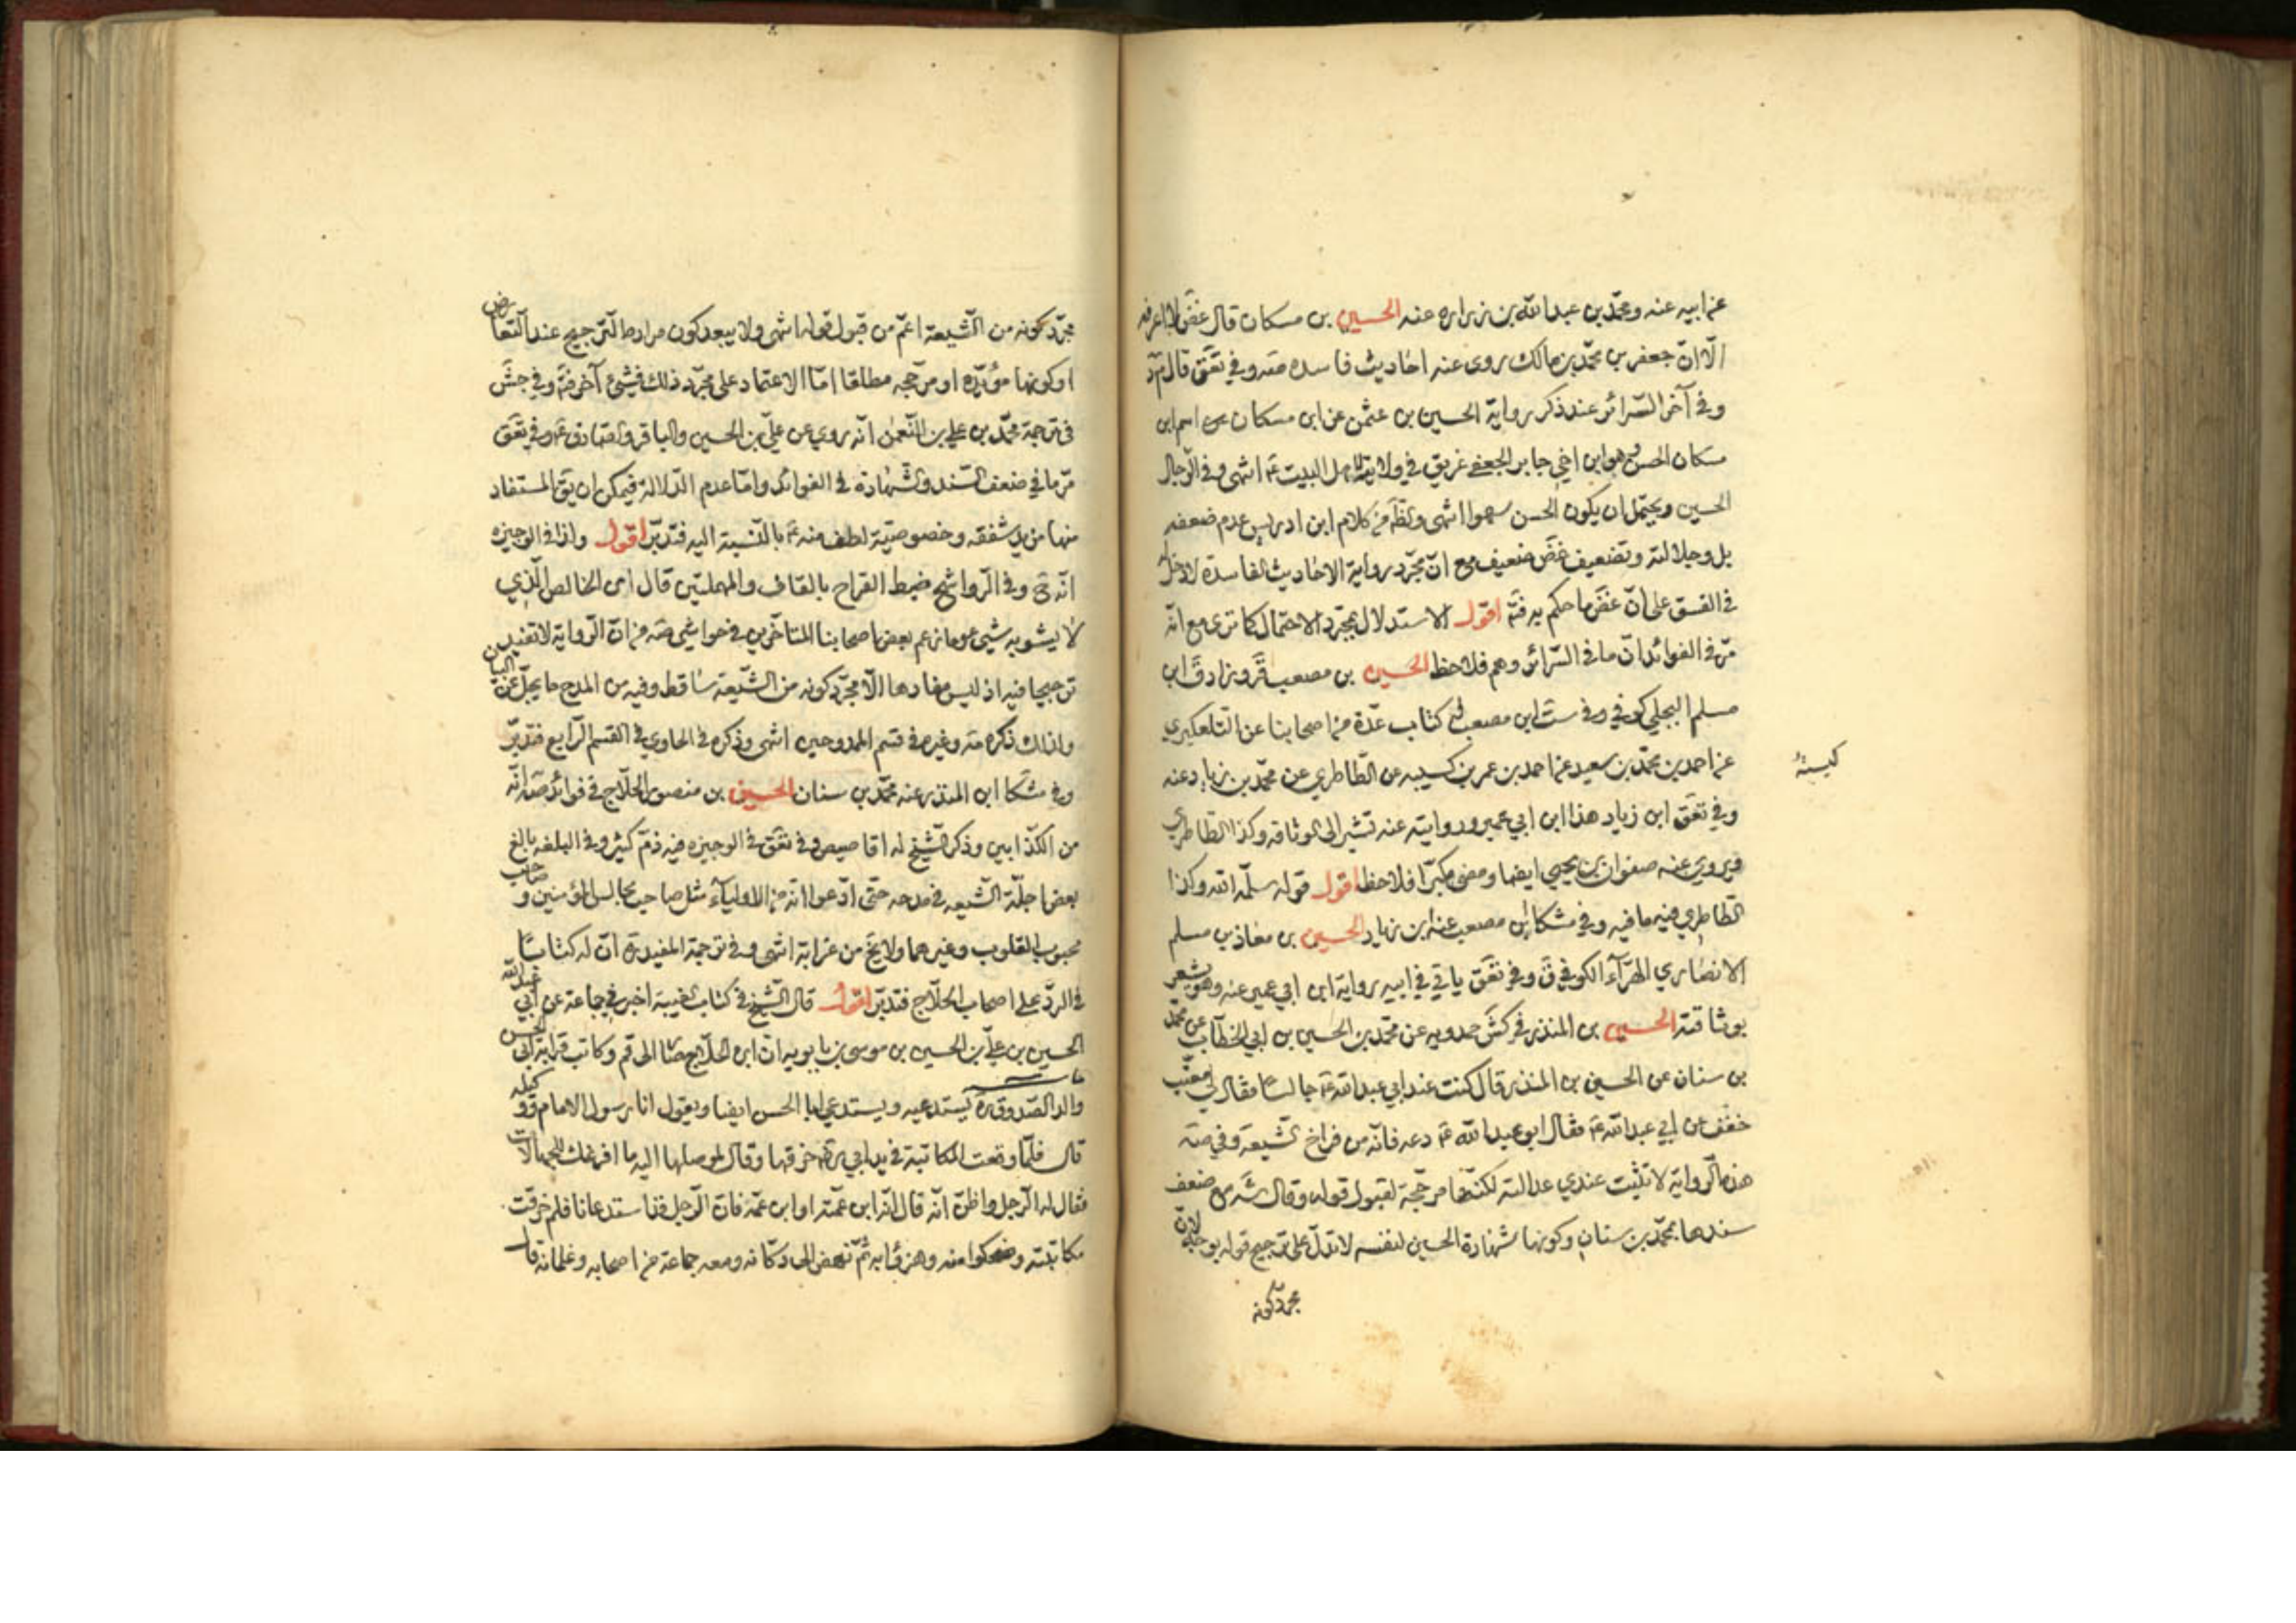 عن ابيه عنه ومحمّد بن عبدالله بن زراره عنه الحسين بن مسكان قال غض لا اعرفه
الّا انّ جعفر بن محمّد بن مالك روى عنه احاديث فاسده صه وفي تعق قال م ح د
وفي آخر السّرائر عند ذكر رواية الحسين بن عثمن عن ابن مسكان اسم ابن
مسكان الحسن وهو ابن اخي جابر الجعفي غريق في ولايته لاهل البيت ع انتهى وفي الرّجال
الحسين ويحتمل ان يكون الحسن سهوا انتهى ويظهر من كلام ابن ادريس عدم ضعفه
بل وجلالته وتضعيف غض ضعيف مع انّ مجّرد رواية الاحاديث الفاسدة لا دخل له
في الفسق على انّ غض ما حكم به فتم اقول الاستدلال بمجّرد الاحتمال كما ترى مع انّه
مرّ في الفوائد انّ ما في السّرائر وهم فلاحظ الحسين بن مصعب قر وزاد ق ابن
مسلم البجلي كوفي وفي ست ابن مصعب له كتاب عدّة من اصحابنا عن التلعكبري
عن احمد بن محمّد بن سعيد عن احمد بن عمر بن كسيبه عن الطّاطري عن محمّد بن زياد عنه
كيسبة
وفي تعق ابن زياد هذا ابن ابي عمير وروايته عنه تشير الى الوثاقه وكذا الطّاطري
ويروي عنه صفوان بن يحيى ايضا ومضى مكبّرا فلاحظ اقول قوله سلّمه الله وكذا
الطّاطري فيه ما فيه وفي مشكا ابن مصعب عنه ابن زياد الحسين بن معاذ بن مسلم
الانصاري الهرّاء الكوفي ق وفي تعق ياتي في ابيه رواية ابن ابي عمير عنه وهو يشعر
بوثاقته الحسين بن المنذر في كش حمدويه عن محمّد بن الحسين بن ابي الخطّاب عن محمّد
بن سنان عن الحسين بن المنذر قال كنت عند ابي عبدالله ع جالسًا فقال لي معتّب
خفّف عن ابي عبدالله ع فقال ابو عبدالله ع دعه فانّه من فراخ الشّيعة وفي صه
هذه الرّواية لا تثبت عندي عدالته لكنّها مرجّحة لقبول قوله وقال شه مع ضعف
سندها بمحمّد بن سنان وكونها شهادة الحسين لنفسه لا تدلّ على ترجيح قوله بوجه لانّ
مجرّد كونه
مجرّد كونه من الشّيعة اعمّ من قبول قوله انتهى ولا يبعد كون مراده الترجيح عند التّعارض
او كونها مؤيّده او مرجّحه مطلقا امّا الاعتماد على مجرّد ذلك فشيئ آخر فتم وفي جش
في ترجمة محمّد بن علي بن النّعمن انّه روي عن عليّ بن الحسين والباقر والصّادق ع وفي تعق
مرّ ما في ضعف السّند والشّهادة في الفوائد وامّا عدم الدّلالة فيمكن ان يق المستفاد
منها مزيد شفقه وخصوصيّة لطف منه ع بالنّسبة اليه فتدبّر اقول ولذا في الوجيزه
انّه ح وفي الرّواشح ضبط القراح بالقاف والمهملتين قال اى الخالص الّذي
لا يشوبه شيئ وما زعم بعض اصحابنا المتاخّرين في حواشي صه من انّ الرّواية لا تفيد
ترجيحا فيه اذ ليس مفادها الّا مجرّد كونه من الشّيعة ساقط وفيه من المدح ما يجلّ عن البيان
ولذلك ذكره صه وغيره في قسم الممدوحين انتهى وذكره في الحاوي في القسم الرّابع فتدبّر
وفي مشكا ابن المنذر عنه محمّد بن سنان الحسين بن منصور الحلّاج في فوائد صه انّه
من الكذّابين وذكر الشّيخ له اقاصيص وفي تعق في الوجيزه فيه ذمّ كثير وفي البلغه بالغ
بعض اجلّة الشّيعه في مدحه حتّى ادّعوا انّه من الاولياء مثل صاحب مجالس المؤمنين وصاحب
محبوب القلوب وغيرهما ولا يخ من غرابة انتهى وفي ترجمة المفيد ره انّ له كتاباً
في الردّ على اصحاب الحلّاج فتدبّر اقول قال الشّيخ في كتاب الغيبة اخبرني جماعة عن ابي عبدالله
الحسين بن عليّ بن الحسين بن موسى بن بابويه انّ ابن الحلّاج صار الى قم وكاتب قرابة ابي الحسن
والد الصّدوق ره يستدعيه ويستدعي ابا الحسن ايضا ويقول انا رسول الامام ووكيله
قال فلمّا وقعت المكاتبة في يد ابي ره خرقها وقال لموصلها اليه ما افرغك للجهالات
فقال له الرّجل واظنّ انّه قال انّه ابن عمّته او ابن عمّه فانّ الرّجل قد استدعانا فلم خرقت
مكاتبته وضحكوا منه وهزؤا به ثمّ نهض الى دكّانه ومعه جماعة من اصحابه وغلمانه قال